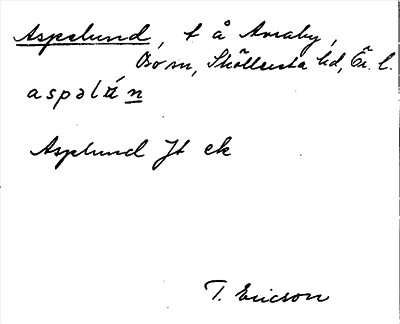 Aspelund, t å Avraby,
Bo sn, Sköllersta hd, Ör. l.
aspəlún
Asplund Jt ek
T. Ericson